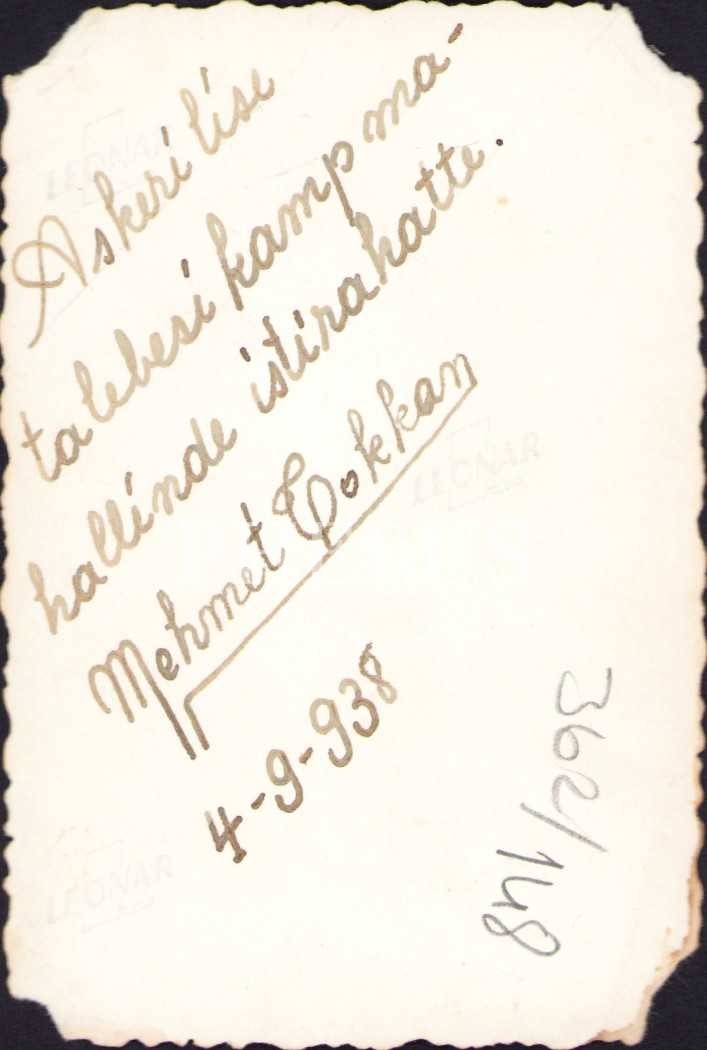 Askeri lise
talebesi kamp ma-
hallinde istirahatte.
Mehmet Çokkan
4-9-938
362/148
LEONAR
LEONAR
LEONAR